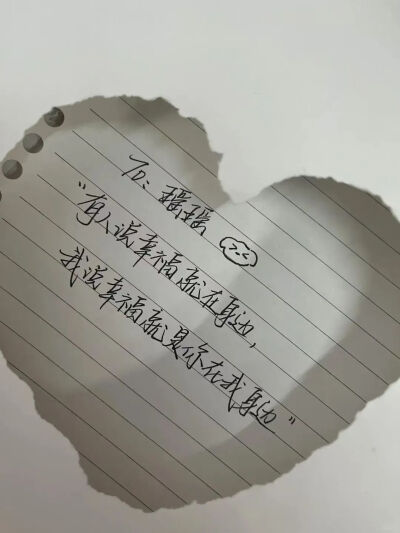 To、瑶瑶
“有人说幸福就在身边，
我说幸福就是你在我身边”